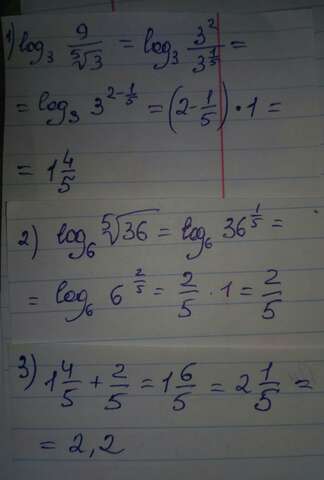 1) log₃ 9/⁵√3 = log₃ 3²/3^(1/5) =
= log₃ 3^(2-1/5) = (2-1/5)·1 =
= 1 4/5
2) log₆ ⁵√36 = log₆ 36^(1/5) =
= log₆ 6^(2/5) = 2/5 · 1 = 2/5
3) 1 4/5 + 2/5 = 1 6/5 = 2 1/5 =
= 2,2